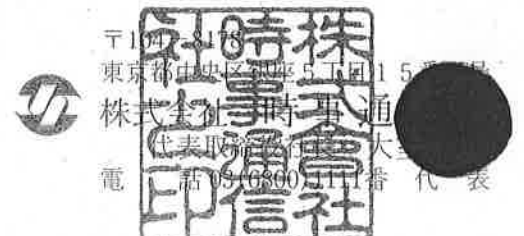 〒104-8178
東京都中央区銀座5丁目15番
株式会社 時事通
代表取締役 大
電 話 03(6800)1111番 代 表
株式會社
時事通信
社之印